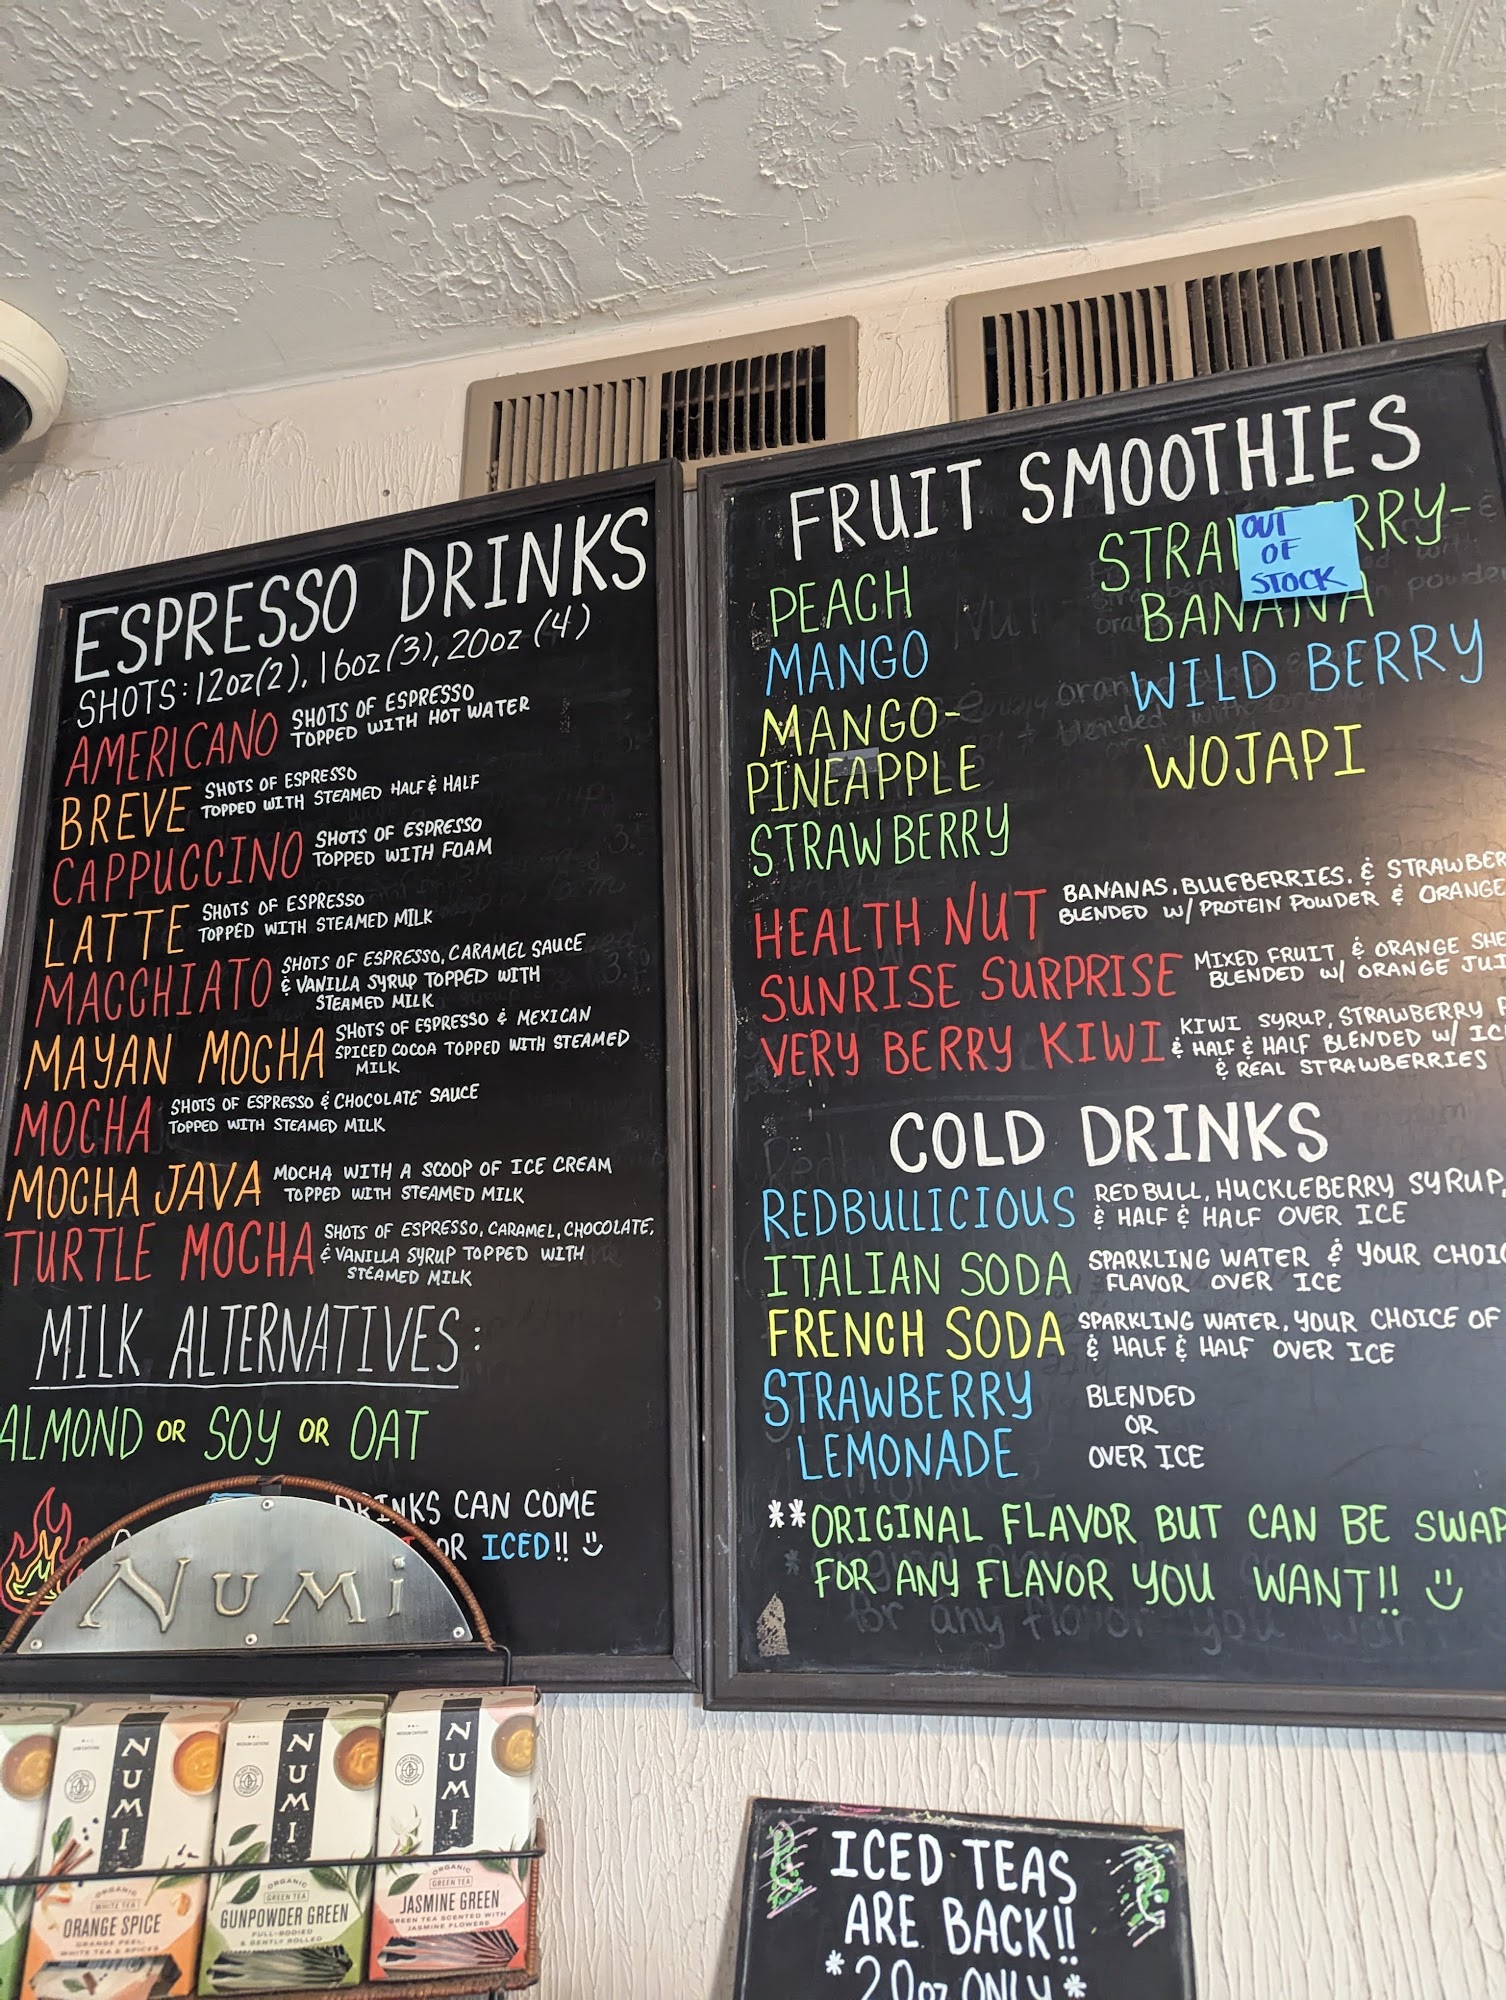 ESPRESSO DRINKS
SHOTS: 12oz(2), 16oz(3), 20oz(4)
AMERICANO SHOTS OF ESPRESSO
TOPPED WITH HOT WATER
BREVE SHOTS OF ESPRESSO
TOPPED WITH STEAMED HALF & HALF
CAPPUCCINO SHOTS OF ESPRESSO
TOPPED WITH FOAM
LATTE SHOTS OF ESPRESSO
TOPPED WITH STEAMED MILK
MACCHIATO SHOTS OF ESPRESSO, CARAMEL SAUCE
& VANILLA SYRUP TOPPED WITH
STEAMED MILK
MAYAN MOCHA SHOTS OF ESPRESSO & MEXICAN
SPICED COCOA TOPPED WITH STEAMED
MILK
MOCHA SHOTS OF ESPRESSO & CHOCOLATE SAUCE
TOPPED WITH STEAMED MILK
MOCHA JAVA MOCHA WITH A SCOOP OF ICE CREAM
TOPPED WITH STEAMED MILK
TURTLE MOCHA SHOTS OF ESPRESSO, CARAMEL, CHOCOLATE,
& VANILLA SYRUP TOPPED WITH
STEAMED MILK
MILK ALTERNATIVES:
ALMOND OR SOY OR OAT
DRINKS CAN COME
OR ICED!!
NUMi
FRUIT SMOOTHIES
PEACH
MANGO
MANGO-
PINEAPPLE
STRAWBERRY
STRA RRY-
BANANA
OUT
OF
STOCK
WILD BERRY
WOJAPI
HEALTH NUT BANANAS, BLUEBERRIES, & STRAWBER
BLENDED W/ PROTEIN POWDER & ORANGE
SUNRISE SURPRISE MIXED FRUIT & ORANGE SHE
BLENDED W/ ORANGE JUI
VERY BERRY KIWI KIWI SYRUP, STRAWBERRY
& HALF & HALF BLENDED W/ IC
& REAL STRAWBERRIES
COLD DRINKS
REDBULLICIOUS RED BULL, HUCKLEBERRY SYRUP,
& HALF & HALF OVER ICE
ITALIAN SODA SPARKLING WATER & YOUR CHOIC
FLAVOR OVER ICE
FRENCH SODA SPARKLING WATER, YOUR CHOICE OF
& HALF & HALF OVER ICE
STRAWBERRY
LEMONADE
BLENDED
OR
OVER ICE
**ORIGINAL FLAVOR BUT CAN BE SWAP
FOR ANY FLAVOR YOU WANT!!
for any flavor you want
NUMI
ORGANIC
WHITE TEA
ORANGE SPICE
ORANGE PEEL,
WHITE TEA & SPICES
NUMI
ORGANIC
GREEN TEA
GUNPOWDER GREEN
FULL-BODIED
& GENTLY ROLLED
NUMI
ORGANIC
GREEN TEA
JASMINE GREEN
GREEN TEA SCENTED WITH
JASMINE FLOWERS
ICED TEAS
ARE BACK!!
*20oz ONLY*